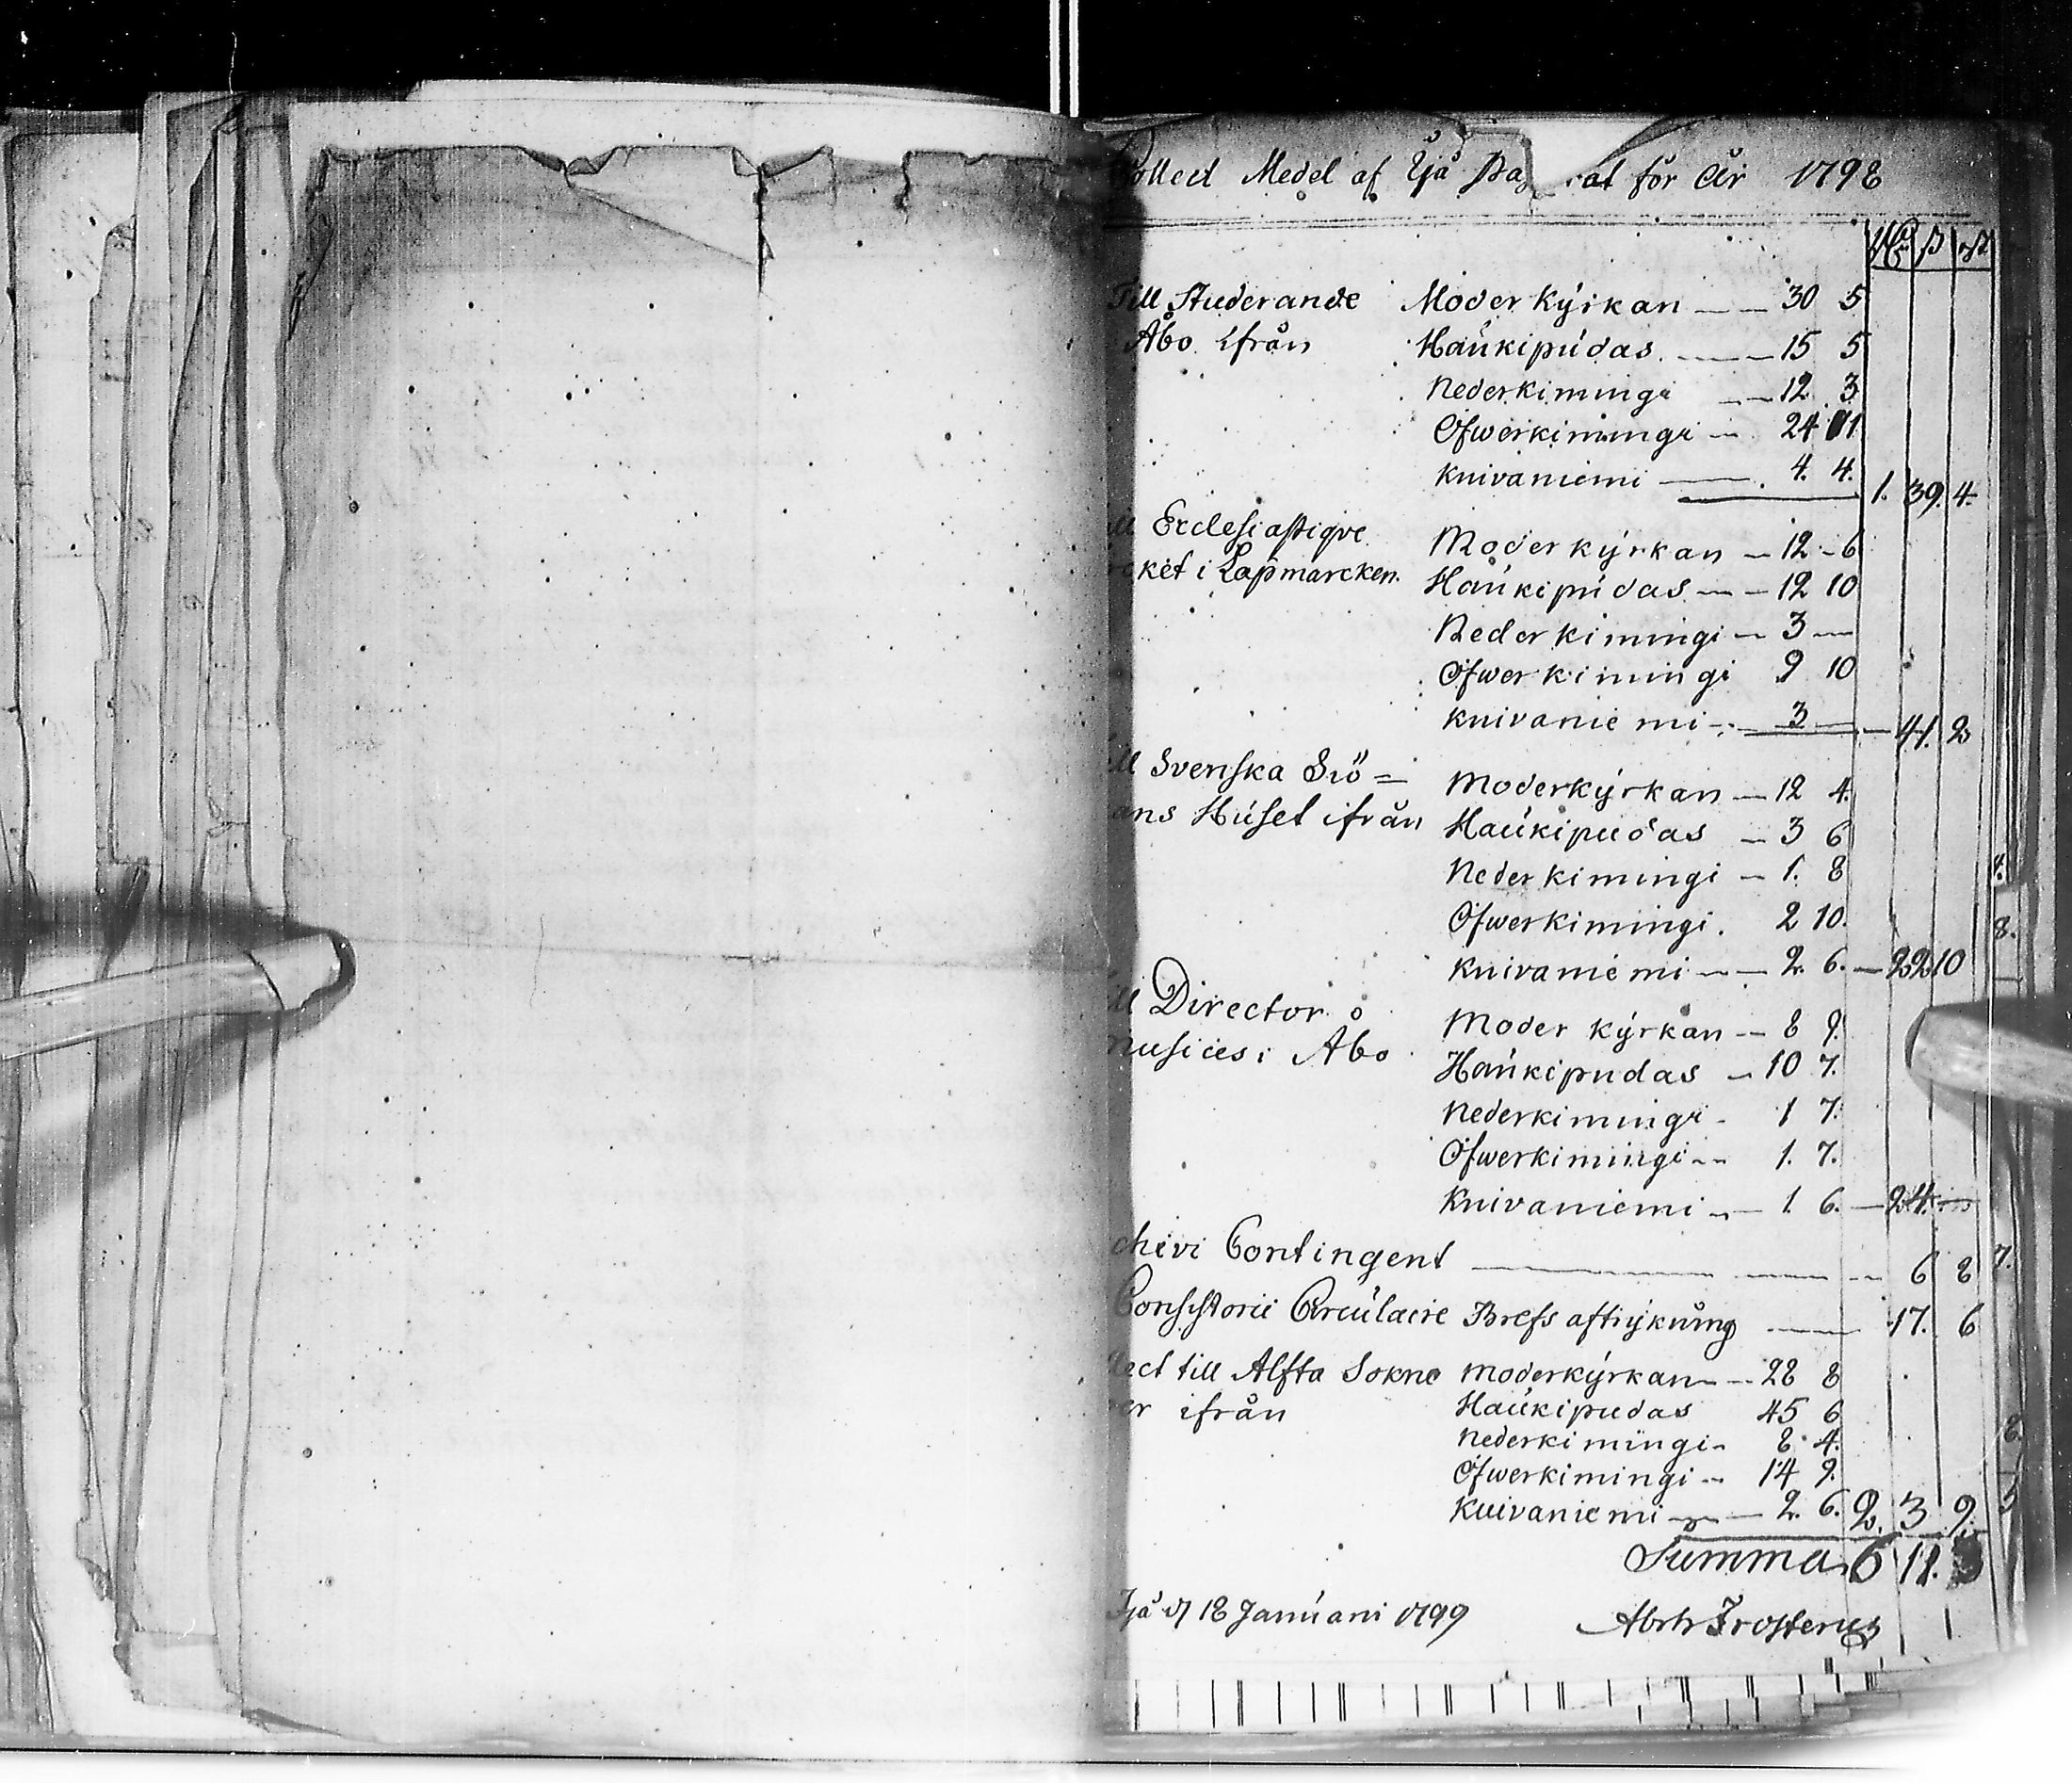 Collect Medel af Ijå Pa rat för År 1798
Rd ß rst
Till Studerande Moder Kÿrkan — 30 5
Åbo ifrån Haukipudas — 15 5
Nederkimingi — 12 3
Öfwerkimingi — 24 11
Knivaniemi — 4. 4. 1. 39. 4.
ll Ecclesiastiqve Moder kÿrkan — 12 - 6
rket i Lapmarcken. Haukipudas — 12 10
Neder kimingi — 3 —
Öfwer kimingi 9 10
Knivaniemi — 3 — — 41. 2
ll Svenska Siö = Moderkÿrkan — 12 4.
ans Huset ifrån Haukipudas — 3 6
Neder kimingi — 1. 8
Öfwerkimingi. 2 10.
Knivaniemi — 2. 6. — 22 10
ll Director Moder kÿrkan — 8 9.
musices i Åbo Haukipudas — 10 7.
Nederkimingi - 1 7.
Öfwerkimingi — 1. 7.
Knivaniemi — 1. 6. — 24. —
chivi Contingent — 6 8
Consistorii Circulaire Brefs aftryckning — 17. 6
lect till Alfta Sokne Moderkÿrkan — 28 8
er ifrån Haukipudas 45 6
Nederkimingi — 8 4.
Öfwerkimingi — 14 9.
Kuivaniemi — 2. 6. 2. 3 9.
Summa 6 11.
Ijå d 18 Januarii 1799 Abrh Frosterus